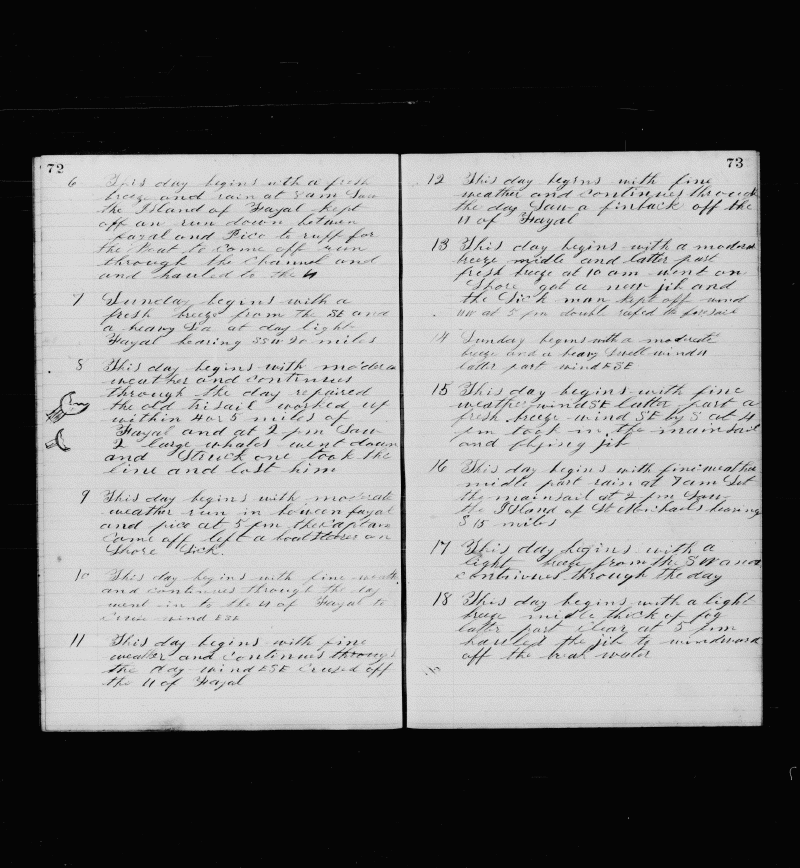 72
6 This day begins with a fresh
breeze and rain at 8 am Saw
the Island of Fayal kept
off an run down between
Fayal and Pico to ruff for
the Boat to come off run
through the Channel and
and hauled to the N
7 Sunday begins with a
fresh breeze from the SE and
a heavy Sea at day light
Fayal bearing SSW 20 miles
8 This day begins with modera
weather and continues
through the day repaired
the old trisail worked up
within 4 or 5 miles of
Fayal and at 2 pm Saw
2 large whales went down
and Struck one took the
line and lost him
9 This day begins with moderate
weather run in between fayal
and pico at 5 pm the Captain
Come off left a boatsteerer on
Shore Sick.
10 This day begins with fine weath
and continues through the day
went in to the N of Fayal to
Cruse wind ESE
11 This day begins with fine
weather and continues through
the day wind ESE Crused off
the N of Fayal
73
12 This day begins with fine
weather and continues through
the day Saw a finback off the
N of Fayal
13 This day begins with a modera
breeze midle and latter part
fresh breeze at 10 am went on
Shore got a new jib and
the Sick man kept off wind
NW at 5 pm double reefed the foresail
14 Sunday begins with a moderate
breeze and a heavy Swell wind N
latter part wind ESE
15 This day begins with fine
weather wind SE latter part a
fresh breeze wind SE by S at 4
pm took in the mainsail
and flying jib
16 This day begins with fine weather
midle part rain at 7 am Set
the mainsail at 2 pm Saw
the Island of St Michaels bearing
S 15 miles
17 This day begins with a
light breeze from the SW and
continues through the day
18 This day begins with a light
breeze midle thick of fog
latter part clear at 5 pm
hauled the jib to windward
off the break water